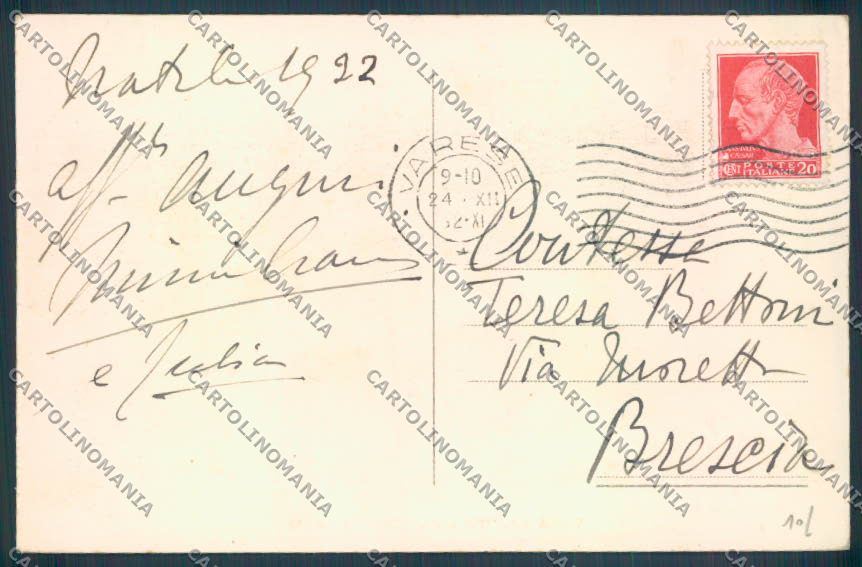 Natale 1932
aff. auguri
e Giulia
VARESE
9-10
24 · XII
32·XI
CENT POSTE
ITALIANE 20
Contessa
Teresa Bettoni
Via Moretto
Brescia
10/
CARTOLINOMANIA